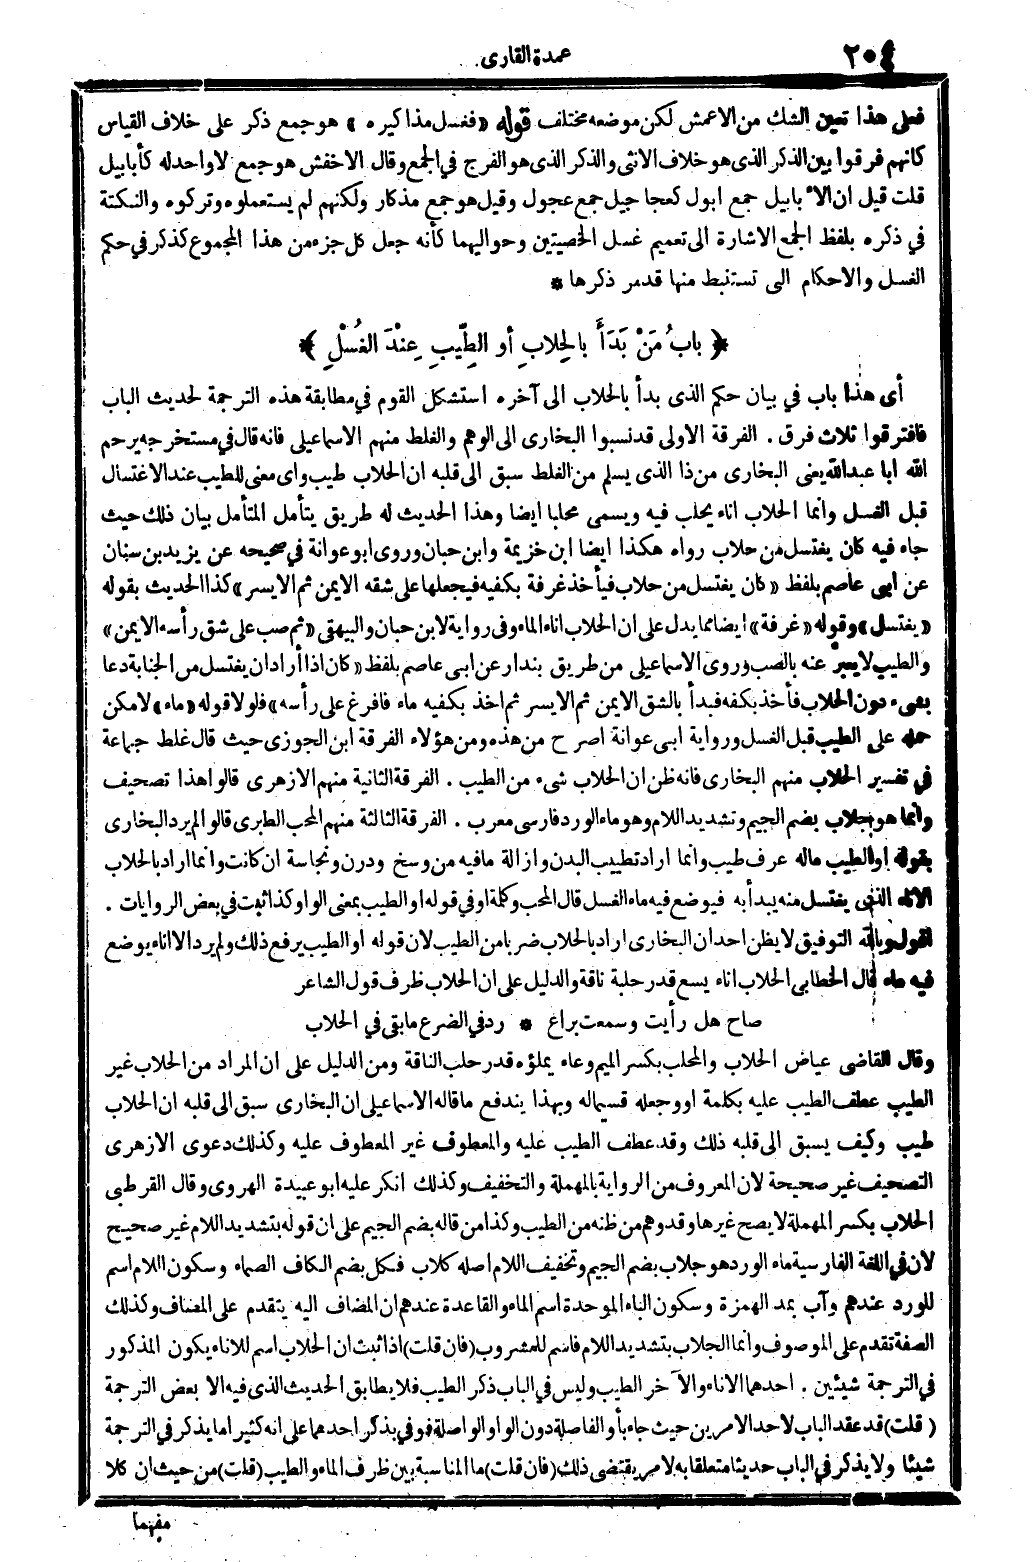 ٢٠٤
عمدة القارى
فعلى هذا تعين الشك من الاعمش لكن موضعه مختلف قوله «فغسل مذاكيره» هو جمع ذكر على خلاف القياس
كانهم فرقوا بين الذكر الذى هو خلاف الانثى والذكر الذى هو الفرج في الجمع وقال الاخفش هو جمع لا واحد له كأبابيل
قلت قيل ان الابابيل جمع ابول كعجاجيل جمع عجول وقيل هو جمع مذكار ولكنهم لم يستعملوه وتركوه والنكتة
في ذكره بلفظ الجمع الاشارة الى تعميم غسل الخصيتين وحواليهما كأنه جعل كل جزء من هذا المجموع كذكر في حكم
الغسل والاحكام التى تستنبط منها قد مر ذكرها *
﴿ بابُ مَنْ بَدَأَ بالحِلابِ أو الطِّيبِ عِنْدَ الغُسْلِ ﴾
أى هذا باب في بيان حكم الذى بدأ بالحلاب الى آخره استشكل القوم في مطابقة هذه الترجمة لحديث الباب
فافترقوا ثلاث فرق . الفرقة الاولى قد نسبوا البخارى الى الوهم والغلط منهم الاسماعيلى فانه قال في مستخرجه يرحم
الله ابا عبدالله يعنى البخارى من ذا الذى يسلم من الغلط سبق الى قلبه ان الحلاب طيب واى معنى للطيب عند الاغتسال
قبل الغسل وانما الحلاب اناء يحلب فيه ويسمى محلبا ايضا وهذا الحديث له طريق يتأمل المتأمل بيان ذلك حيث
جاء فيه كان يغتسل من حلاب رواه هكذا ايضا ابن خزيمة وابن حبان وروى ابو عوانة في صحيحه عن يزيد بن سنان
عن ابى عاصم بلفظ «كان يغتسل من حلاب فيأخذ غرفة بكفيه فيجعلها على شقه الايمن ثم الايسر» كذا الحديث بقوله
«يغتسل» وقوله «غرفة» ايضا مما يدل على ان الحلاب اناء الماء وفى رواية لابن حبان والبيهقى «ثم صب على شق رأسه الايمن»
والطيب لا يعبر عنه بالصب وروى الاسماعيلى من طريق بندار عن ابى عاصم بلفظ «كان اذا أراد ان يغتسل من الجنابة دعا
بشىء دون الحلاب فأخذ بكفه فبدأ بالشق الايمن ثم الايسر ثم اخذ بكفيه ماء فافرغ على رأسه» فلولا قوله «ماء» لامكن
حمله على الطيب قبل الغسل ورواية ابى عوانة اصرح من هذه ومن هؤلاء الفرقة ابن الجوزى حيث قال غلط جماعة
في تفسير الحلاب منهم البخارى فانه ظن ان الحلاب شىء من الطيب . الفرقة الثانية منهم الازهرى قالوا هذا تصحيف
وانما هو جلاب بضم الجيم وتشديد اللام وهو ماء الورد فارسى معرب . الفرقة الثالثة منهم المحب الطبرى قالوا لم يرد البخارى
بقوله او الطيب ماله عرف طيب وانما اراد تطييب البدن وازالة مافيه من وسخ ودرن ونجاسة ان كانت وانما اراد بالحلاب
الاناء الذى يغتسل منه يبدأ به فيوضع فيه ماء الغسل قال المحب وكلمة او في قوله او الطيب بمعنى الواو كذا ثبت في بعض الروايات .
اقول وبالله التوفيق لا يظن احد ان البخارى اراد بالحلاب ضربا من الطيب لان قوله او الطيب يرفع ذلك ولم يرد الا اناء يوضع
فيه ماء قال الخطابى الحلاب اناء يسع قدر حلبة ناقة والدليل على ان الحلاب ظرف قول الشاعر
صاح هل رأيت وسمعت براع * رد في الضرع مابقى في الحلاب
وقال القاضى عياض الحلاب والمحلب بكسر الميم وعاء يملؤه قدر حلب الناقة ومن الدليل على ان المراد من الحلاب غير
الطيب عطف الطيب عليه بكلمة او وجعله قسيماله وبهذا يندفع ماقاله الاسماعيلى ان البخارى سبق الى قلبه ان الحلاب
طيب وكيف يسبق الى قلبه ذلك وقد عطف الطيب عليه والمعطوف غير المعطوف عليه وكذلك دعوى الازهرى
التصحيف غير صحيحة لان المعروف من الرواية بالمهملة والتخفيف وكذلك انكر عليه ابو عبيدة الهروى وقال القرطبى
الحلاب بكسر المهملة لا يصح غيرها وقد وهم من ظنه من الطيب وكذا من قاله بضم الجيم على ان قوله بتشديد اللام غير صحيح
لان في اللغة الفارسية ماء الورد هو جلاب بضم الجيم وتخفيف اللام اصله كلاب فكل بضم الكاف الصماء وسكون اللام اسم
للورد عندهم وآب بمد الهمزة وسكون الباء الموحدة اسم الماء والقاعدة عندهم ان المضاف اليه يتقدم على المضاف وكذلك
الصفة تقدم على الموصوف وانما الجلاب بتشديد اللام فاسم للمشروب (فان قلت) اذا ثبت ان الحلاب اسم للاناء يكون المذكور
في الترجمة شيئين . احدهما الاناء والآخر الطيب وليس في الباب ذكر الطيب فلا يطابق الحديث الذى فيه الا بعض الترجمة
(قلت) قد عقد الباب لاحد الامرين حيث جاء بأو الفاصلة دون الواو الواصلة فوفى بذكر احدهما على انه كثيرا ما يذكر في الترجمة
شيئا ولا يذكر في الباب حديثا متعلقا به لامر يقتضى ذلك (فان قلت) ما المناسبة بين ظرف الماء والطيب (قلت) من حيث ان كلا
منهما